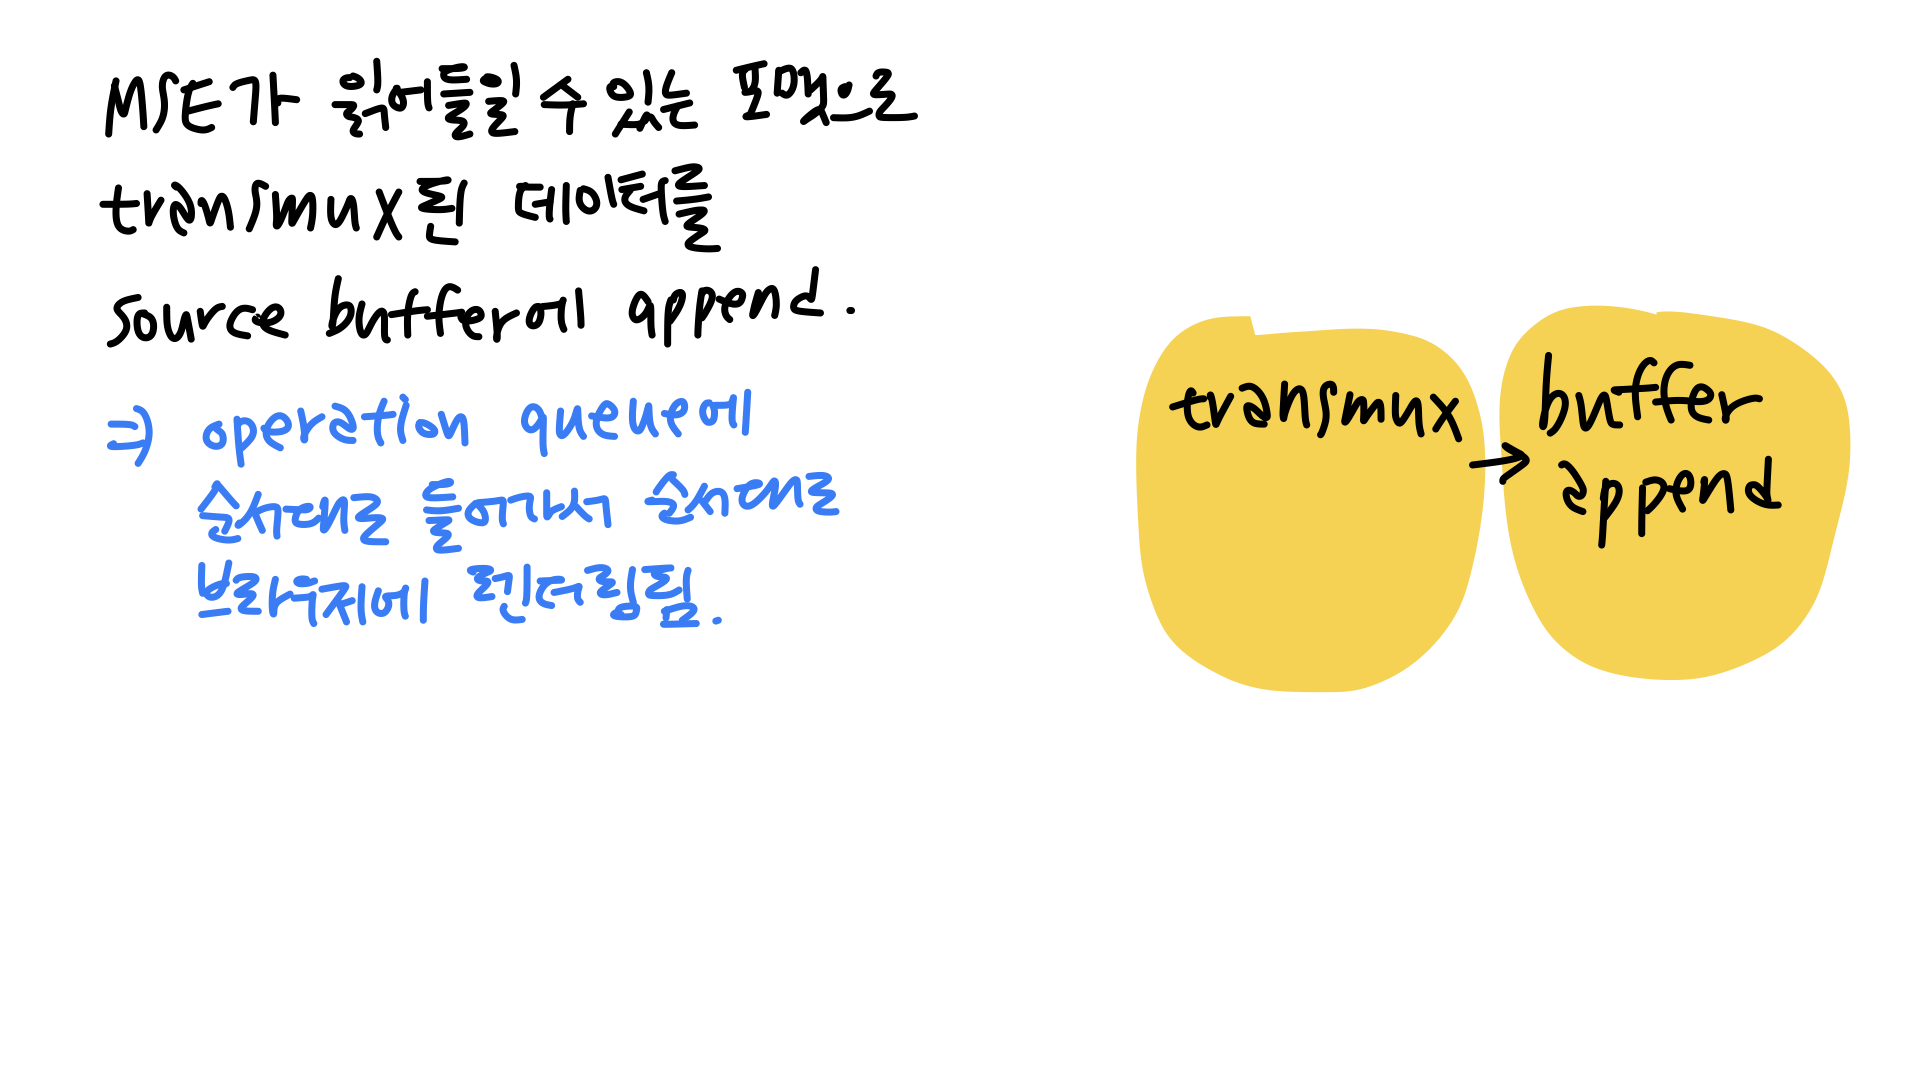 MSE가 읽어들일 수 있는 포맷으로
transmux된 데이터를
source buffer에 append.
⇒ operation queue에
순서대로 들어가서 순서대로
브라우저에 렌더링됨.
transmux → buffer
append